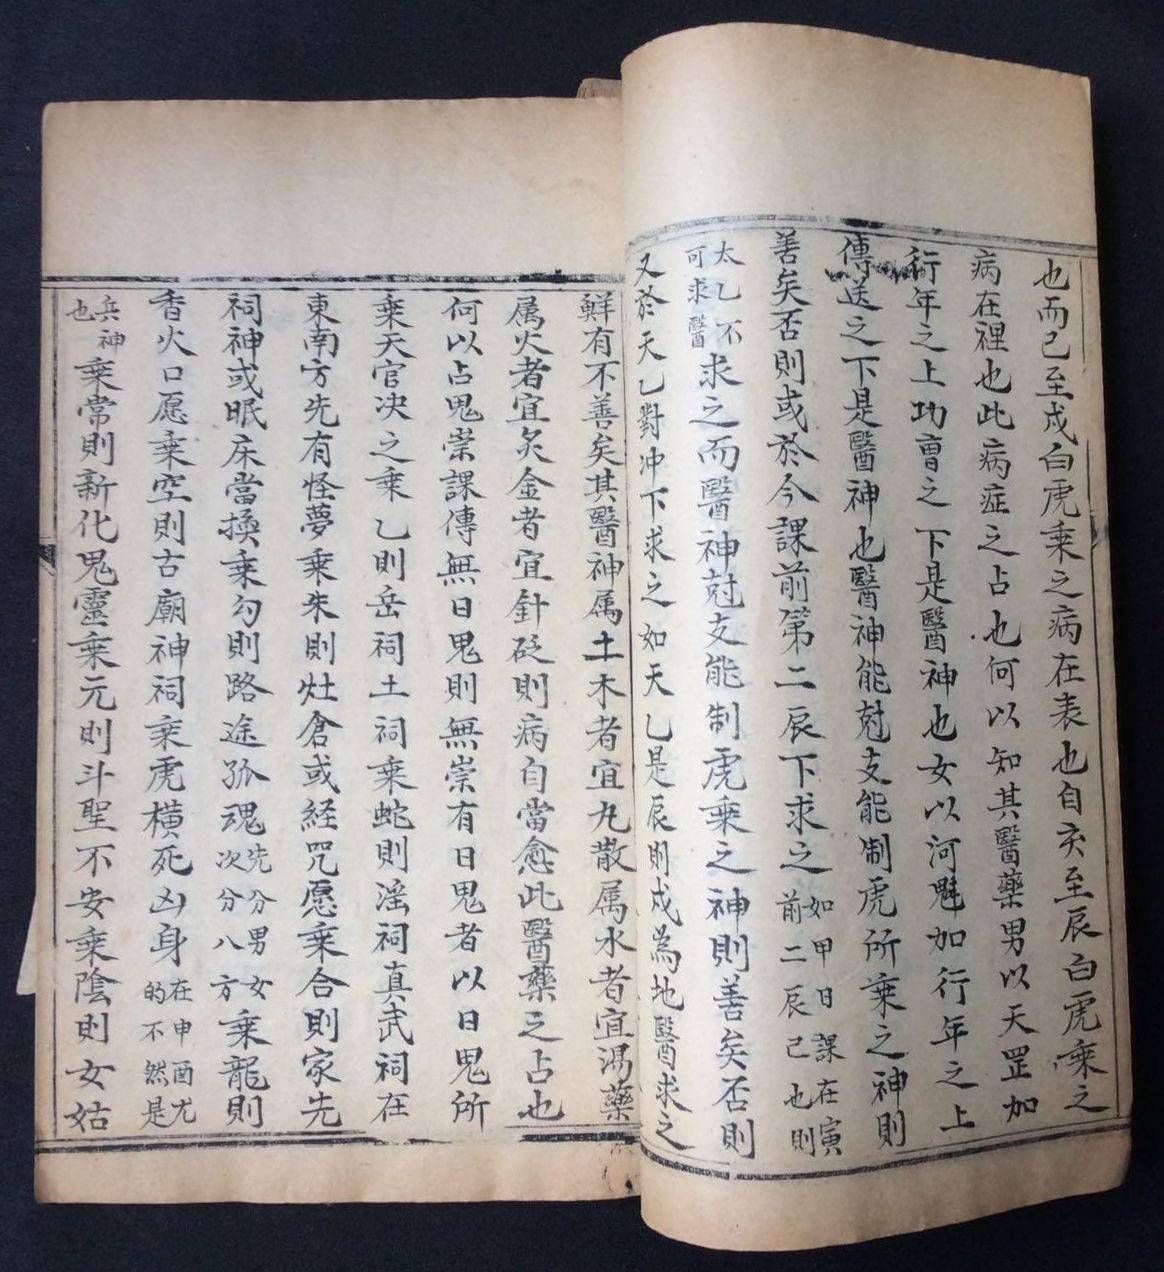 也而已至戍白虎乘之病在表也自亥至辰白虎乘之
病在裡也此病症之占也何以知其醫藥男以天罡加
行年之上功曹之下是醫神也女以河魁加行年之上
傳送之下是醫神也醫神能尅支能制虎所乗之神則
善矣否則或於今課前第二辰下求之如甲日課在寅前二辰已也則
太乙不可求醫求之而醫神尅支能制虎乗之神則善矣否則
又於天乙對冲下求之如天乙是辰則戍為地醫求之
鮮有不善矣其醫神属土木者宜丸散属水者宜湯藥
属火者宜灸金者宜針砭則病自當愈此醫藥之占也
何以占鬼祟課傳無日鬼則無祟有日鬼者以日鬼所
乗天官决之乗乙則岳祠土祠乗蛇則滛祠真武祠在
東南方先有怪夢乗朱則灶倉或経咒愿乗合則家先
祠神或眠床當換乗勾則路途孤魂先分男女次分八方乗龍則
香火口愿乗空則古廟神祠乗虎橫死凶身在申酉尤的不然是
兵神也乗常則新化鬼靈乗元則斗聖不安乗陰則女姑